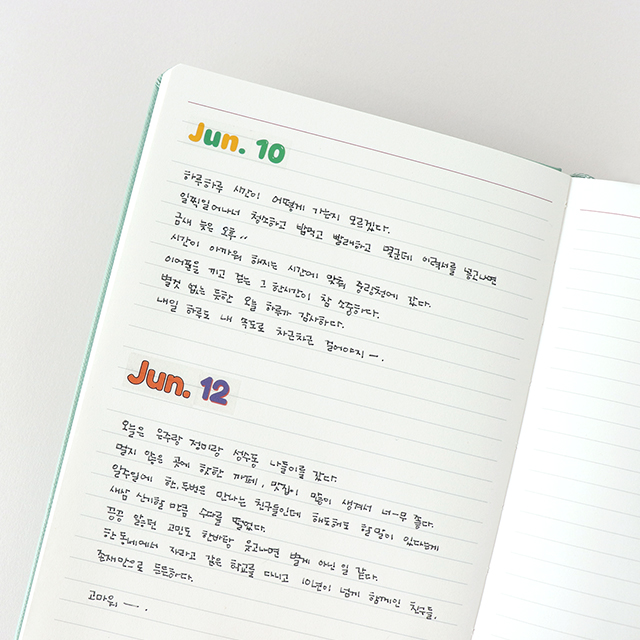 Jun. 10
하루하루 시간이 어떻게 가는지 모르겠다.
일찍일어나서 청소하고 밥먹고 빨래하고 몇군데 이력서를 넣고나면
금새 늦은 오후..
시간이 아까워 해지는 시간에 맞춰 중랑천에 갔다.
이어폰을 끼고 걷는 그 한시간이 참 소중하다.
별것 없는 듯한 오늘 하루가 감사하다.
내일 하루도 내 속도로 차근차근 걸어야지 ㅡ.
Jun. 12
오늘은 은주랑 정미랑 성수동 나들이를 갔다.
멀지 않은 곳에 핫한 까페, 맛집이 많이 생겨서 너-무 좋다.
일주일에 한,두번은 만나는 친구들인데 해도해도 할말이 있다는게
새삼 신기할 만큼 수다를 떨었다.
끙끙 앓던 고민도 한바탕 웃고나면 별게 아닌 일 같다.
한 동네에서 자라고 같은 학교를 다니고 10년이 넘게 함께인 친구들,
존재만으로 든든하다.
고마워 ㅡ.